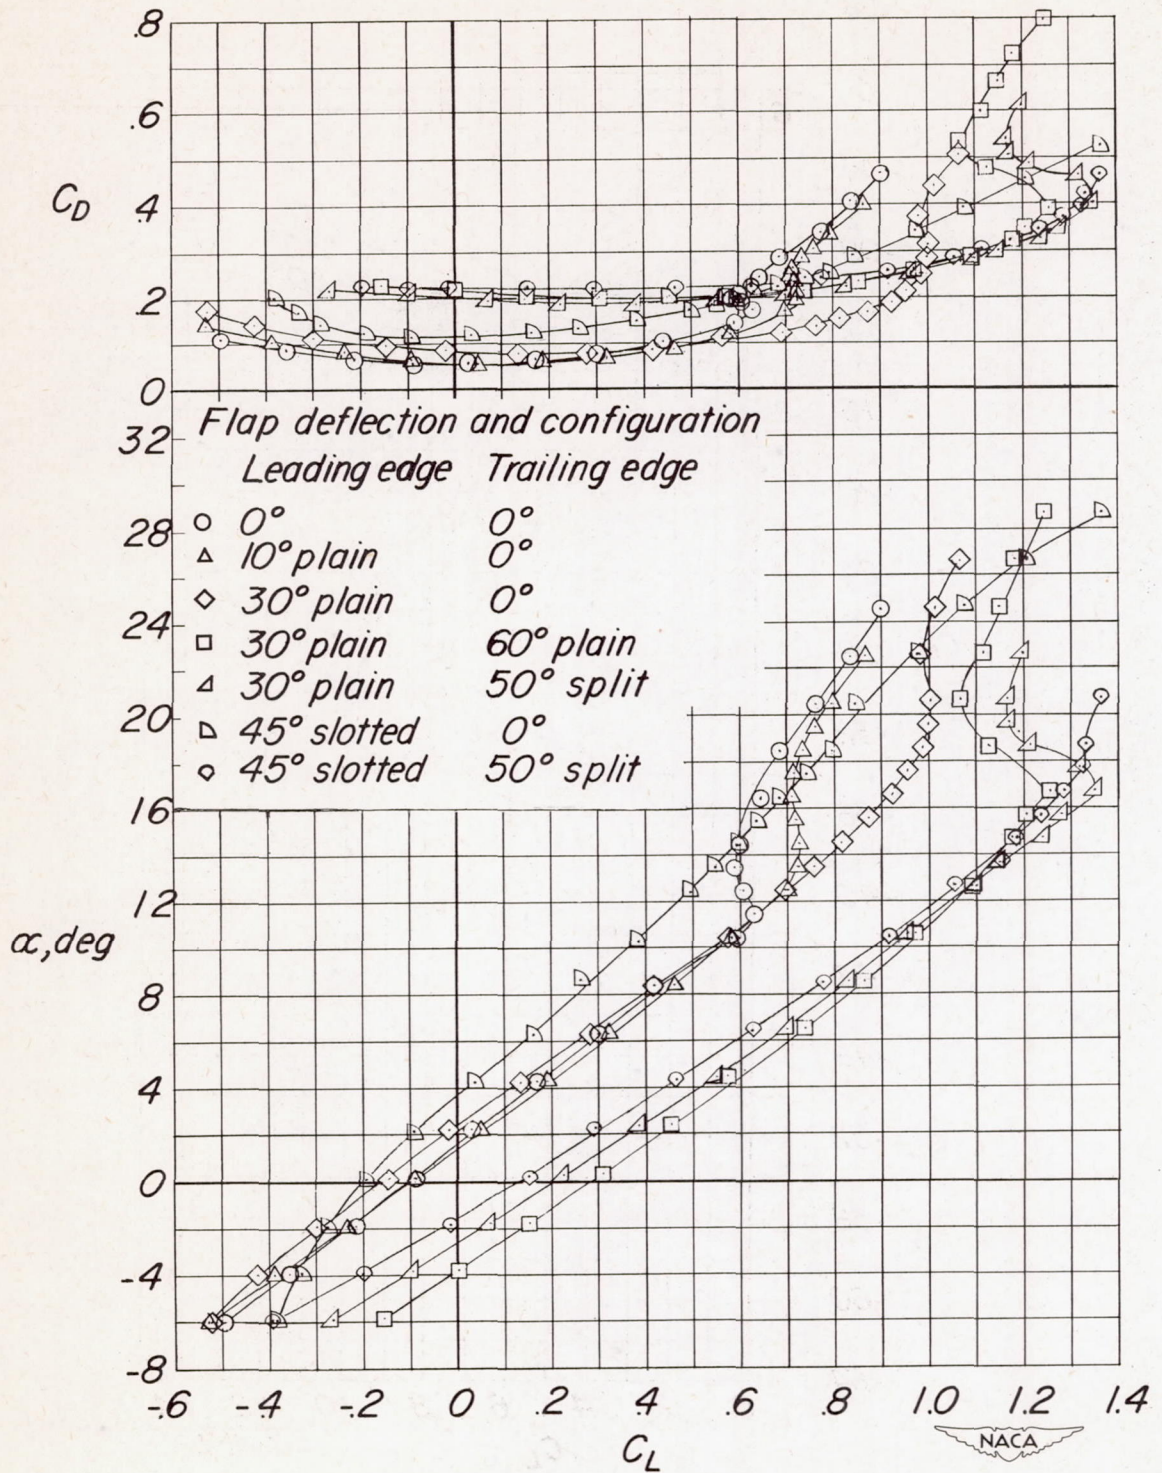 .8
.6
C_D .4
.2
0
Flap deflection and configuration
Leading edge Trailing edge
0° 0°
10° plain 0°
30° plain 0°
30° plain 60° plain
30° plain 50° split
45° slotted 0°
45° slotted 50° split
32
28
24
20
16
12
α, deg
8
4
0
-4
-8
-.6 -.4 -.2 0 .2 .4 .6 .8 1.0 1.2 1.4
C_L
NACA